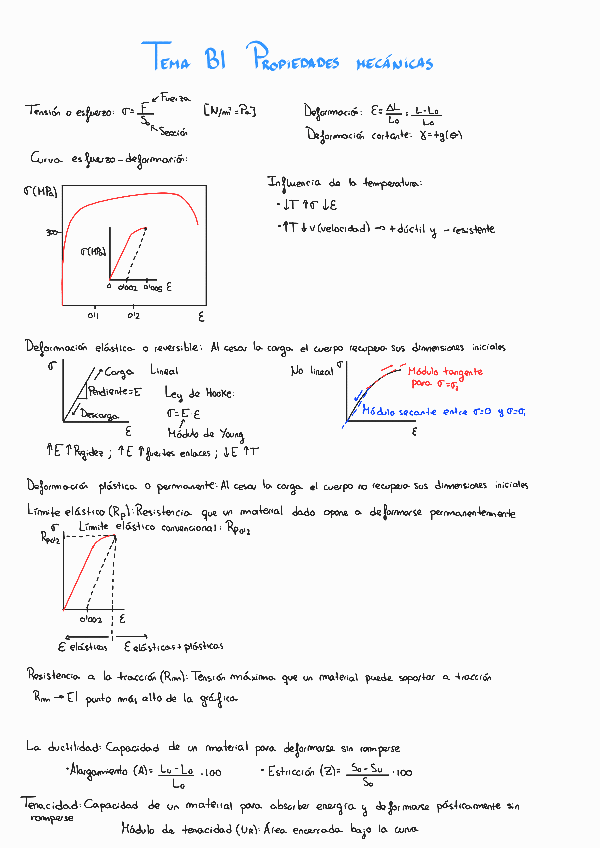 TEMA B1 PROPIEDADES MECÁNICAS
Fuerza
Tensión o esfuerzo: σ = F / S₀ [N/m² = Pa]
Sección
Deformación: ε = ΔL / L₀ = L - L₀ / L₀
Deformación cortante: γ = tg(θ)
Curva esfuerzo-deformación:
σ(MPa)
300
σ(MPa)
0 0'002 0'005 ε
0'1 0'2 ε
Influencia de la temperatura:
· ↓T ↑σ ↓ε
· ↑T ↓v (velocidad) → + dúctil y - resistente
Deformación elástica o reversible: Al cesar la carga el cuerpo recupera sus dimensiones iniciales
σ
Carga
Pendiente = E
Descarga
ε
Lineal
Ley de Hooke:
σ = E ε
Módulo de Young
No lineal
σ
Módulo tangente
para σ=σ₁
Módulo secante entre σ=0 y σ=σ₁
ε
↑E ↑Rigidez ; ↑E ↑fuertes enlaces ; ↓E ↑T
Deformación plástica o permanente: Al cesar la carga el cuerpo no recupera sus dimensiones iniciales
Límite elástico (Rp): Resistencia que un material dado opone a deformarse permanentemente
Límite elástico convencional: Rp0'2
σ
Rp0'2
0'002 ε
ε elásticas ε elásticas + plásticas
Resistencia a la tracción (Rm): Tensión máxima que un material puede soportar a tracción
Rm → El punto más alto de la gráfica
La ductilidad: Capacidad de un material para deformarse sin romperse
· Alargamiento (A) = Lu - L₀ / L₀ · 100
· Estricción (Z) = S₀ - Su / S₀ · 100
Tenacidad: Capacidad de un material para absorber energía y deformarse pásticamente sin
romperse
Módulo de tenacidad (UR): Área encerrada bajo la curva